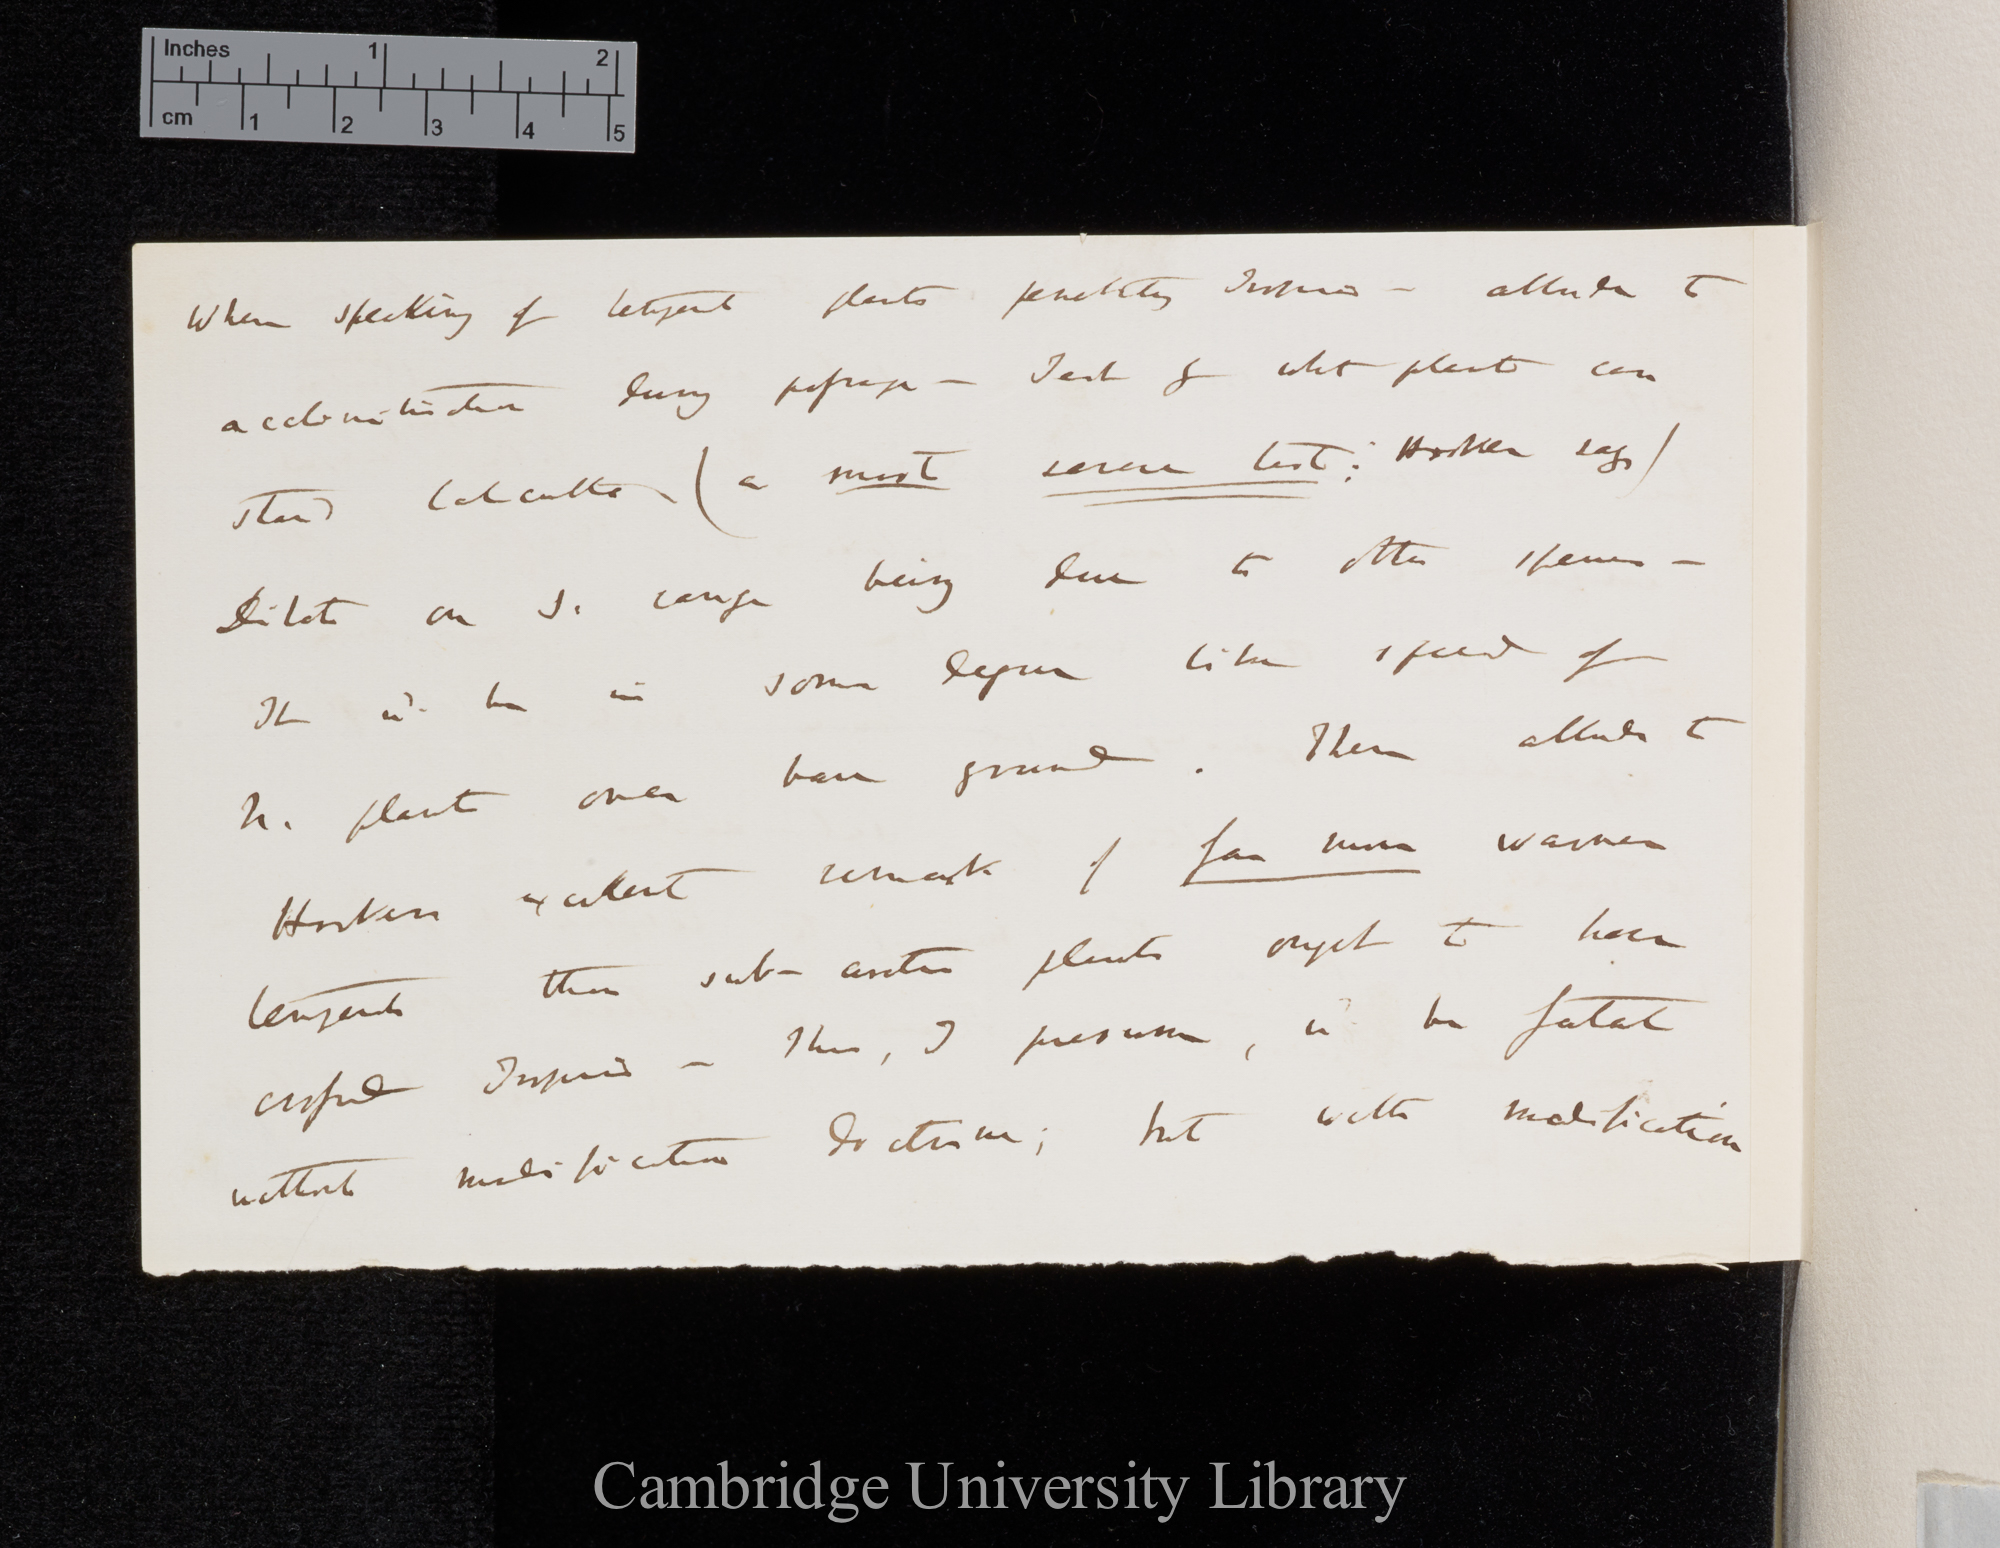 Inches 1 2
cm 1 2 3 4 5
When speaking of temperate plants penetrating Tropics — allude to
acclimatisation during passage — Test of what plants can
stand Calcutta (a most severe test: Hooker says)
Dilate on S. range being due to other species —
It wd. be in some degree like spread of
N. plants over bare ground. Then allude to
Hookers excellent remark of far more warmer
temperate than sub-arctic plants ought to have
crossed Tropics — This, I presume, wd be fatal
without modification doctrine; but with modification
Cambridge University Library